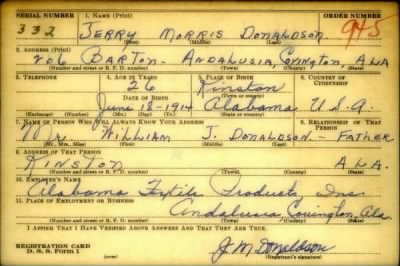 SERIAL NUMBER 1. NAME (Print) ORDER NUMBER
332 JERRY MORRIS DONALDSON 945
(First) (Middle) (Last)
2. ADDRESS (Print)
206 BARTON - ANDALUSIA, Covington, ALA
(Number and street or R. F. D. number) (Town) (County) (State)
3. TELEPHONE 4. AGE IN YEARS 5. PLACE OF BIRTH 6. COUNTRY OF CITIZENSHIP
26 Kinston
DATE OF BIRTH (Town or county)
June 18-1914 Alabama U.S.A.
(Exchange) (Number) (Mo.) (Day) (Yr.) (State or country)
7. NAME OF PERSON WHO WILL ALWAYS KNOW YOUR ADDRESS 8. RELATIONSHIP OF THAT PERSON
Mr. William J. DONALDSON - FATHER
(Mr., Mrs., Miss) (First) (Middle) (Last)
9. ADDRESS OF THAT PERSON
KINSTON ALA.
(Number and street or R. F. D. number) (Town) (County) (State)
10. EMPLOYER'S NAME
Alabama Textile Products Inc.
11. PLACE OF EMPLOYMENT OR BUSINESS
Andalusia Covington, Ala.
(Number and street or R. F. D. number) (Town) (County) (State)
I AFFIRM THAT I HAVE VERIFIED ABOVE ANSWERS AND THAT THEY ARE TRUE.
REGISTRATION CARD J. M. Donaldson
D. S. S. Form 1 (Registrant's signature)